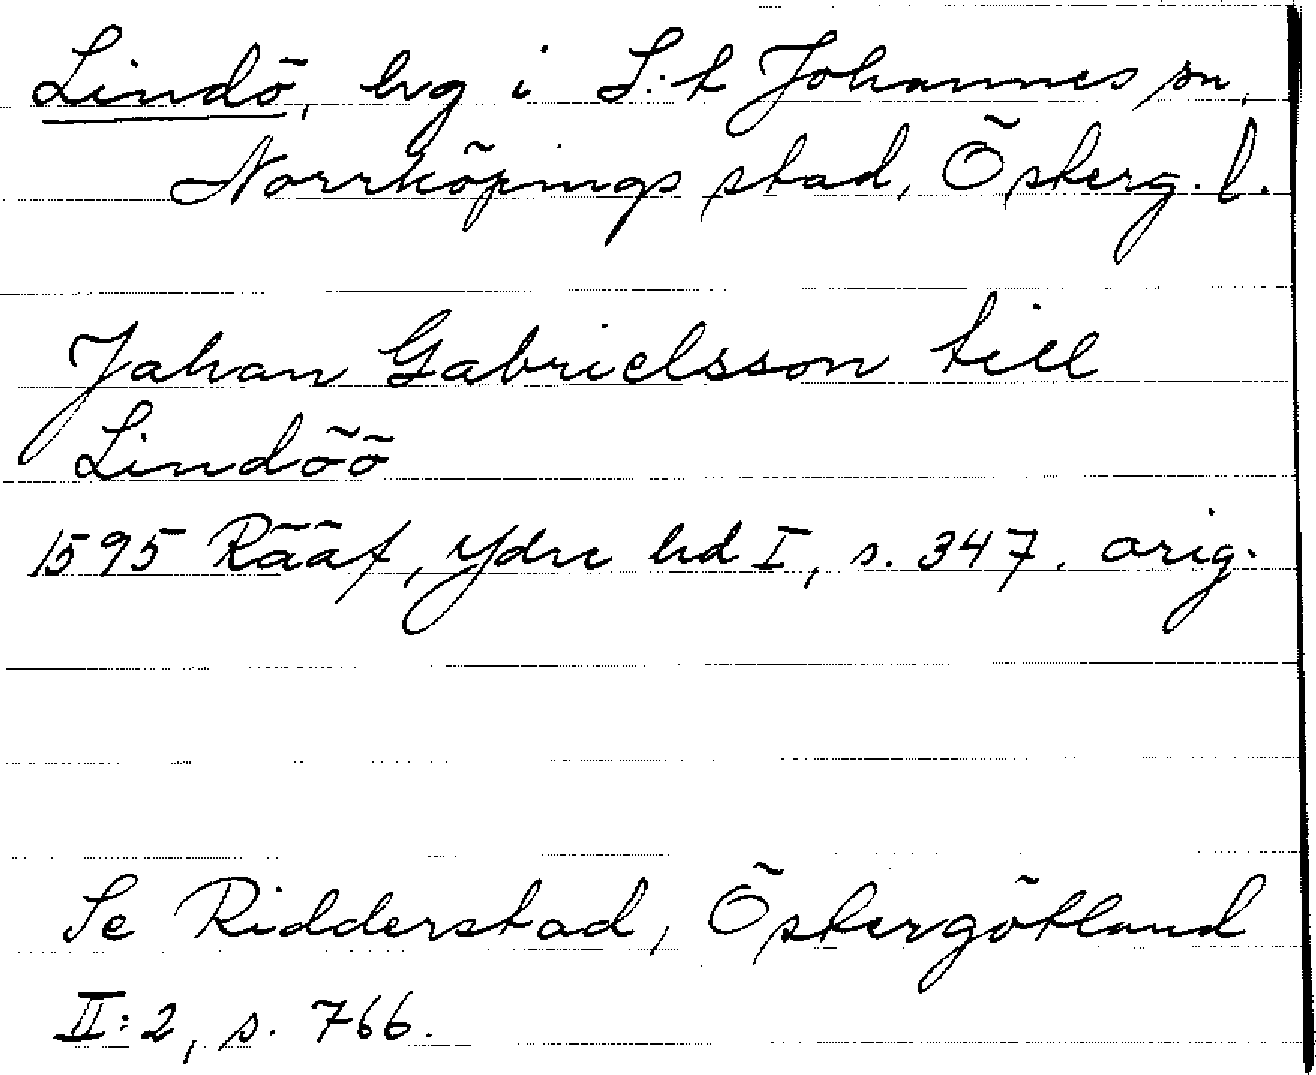 Lindö, hvg i S:t Johannes sn,
Norrköpings stad, Österg. l.
Jahan Gabrielsson till
Lindöö
1595 Rääf, Ydre hd I, s. 347. orig.
Se Ridderstad, Östergötland
II:2, s. 766.